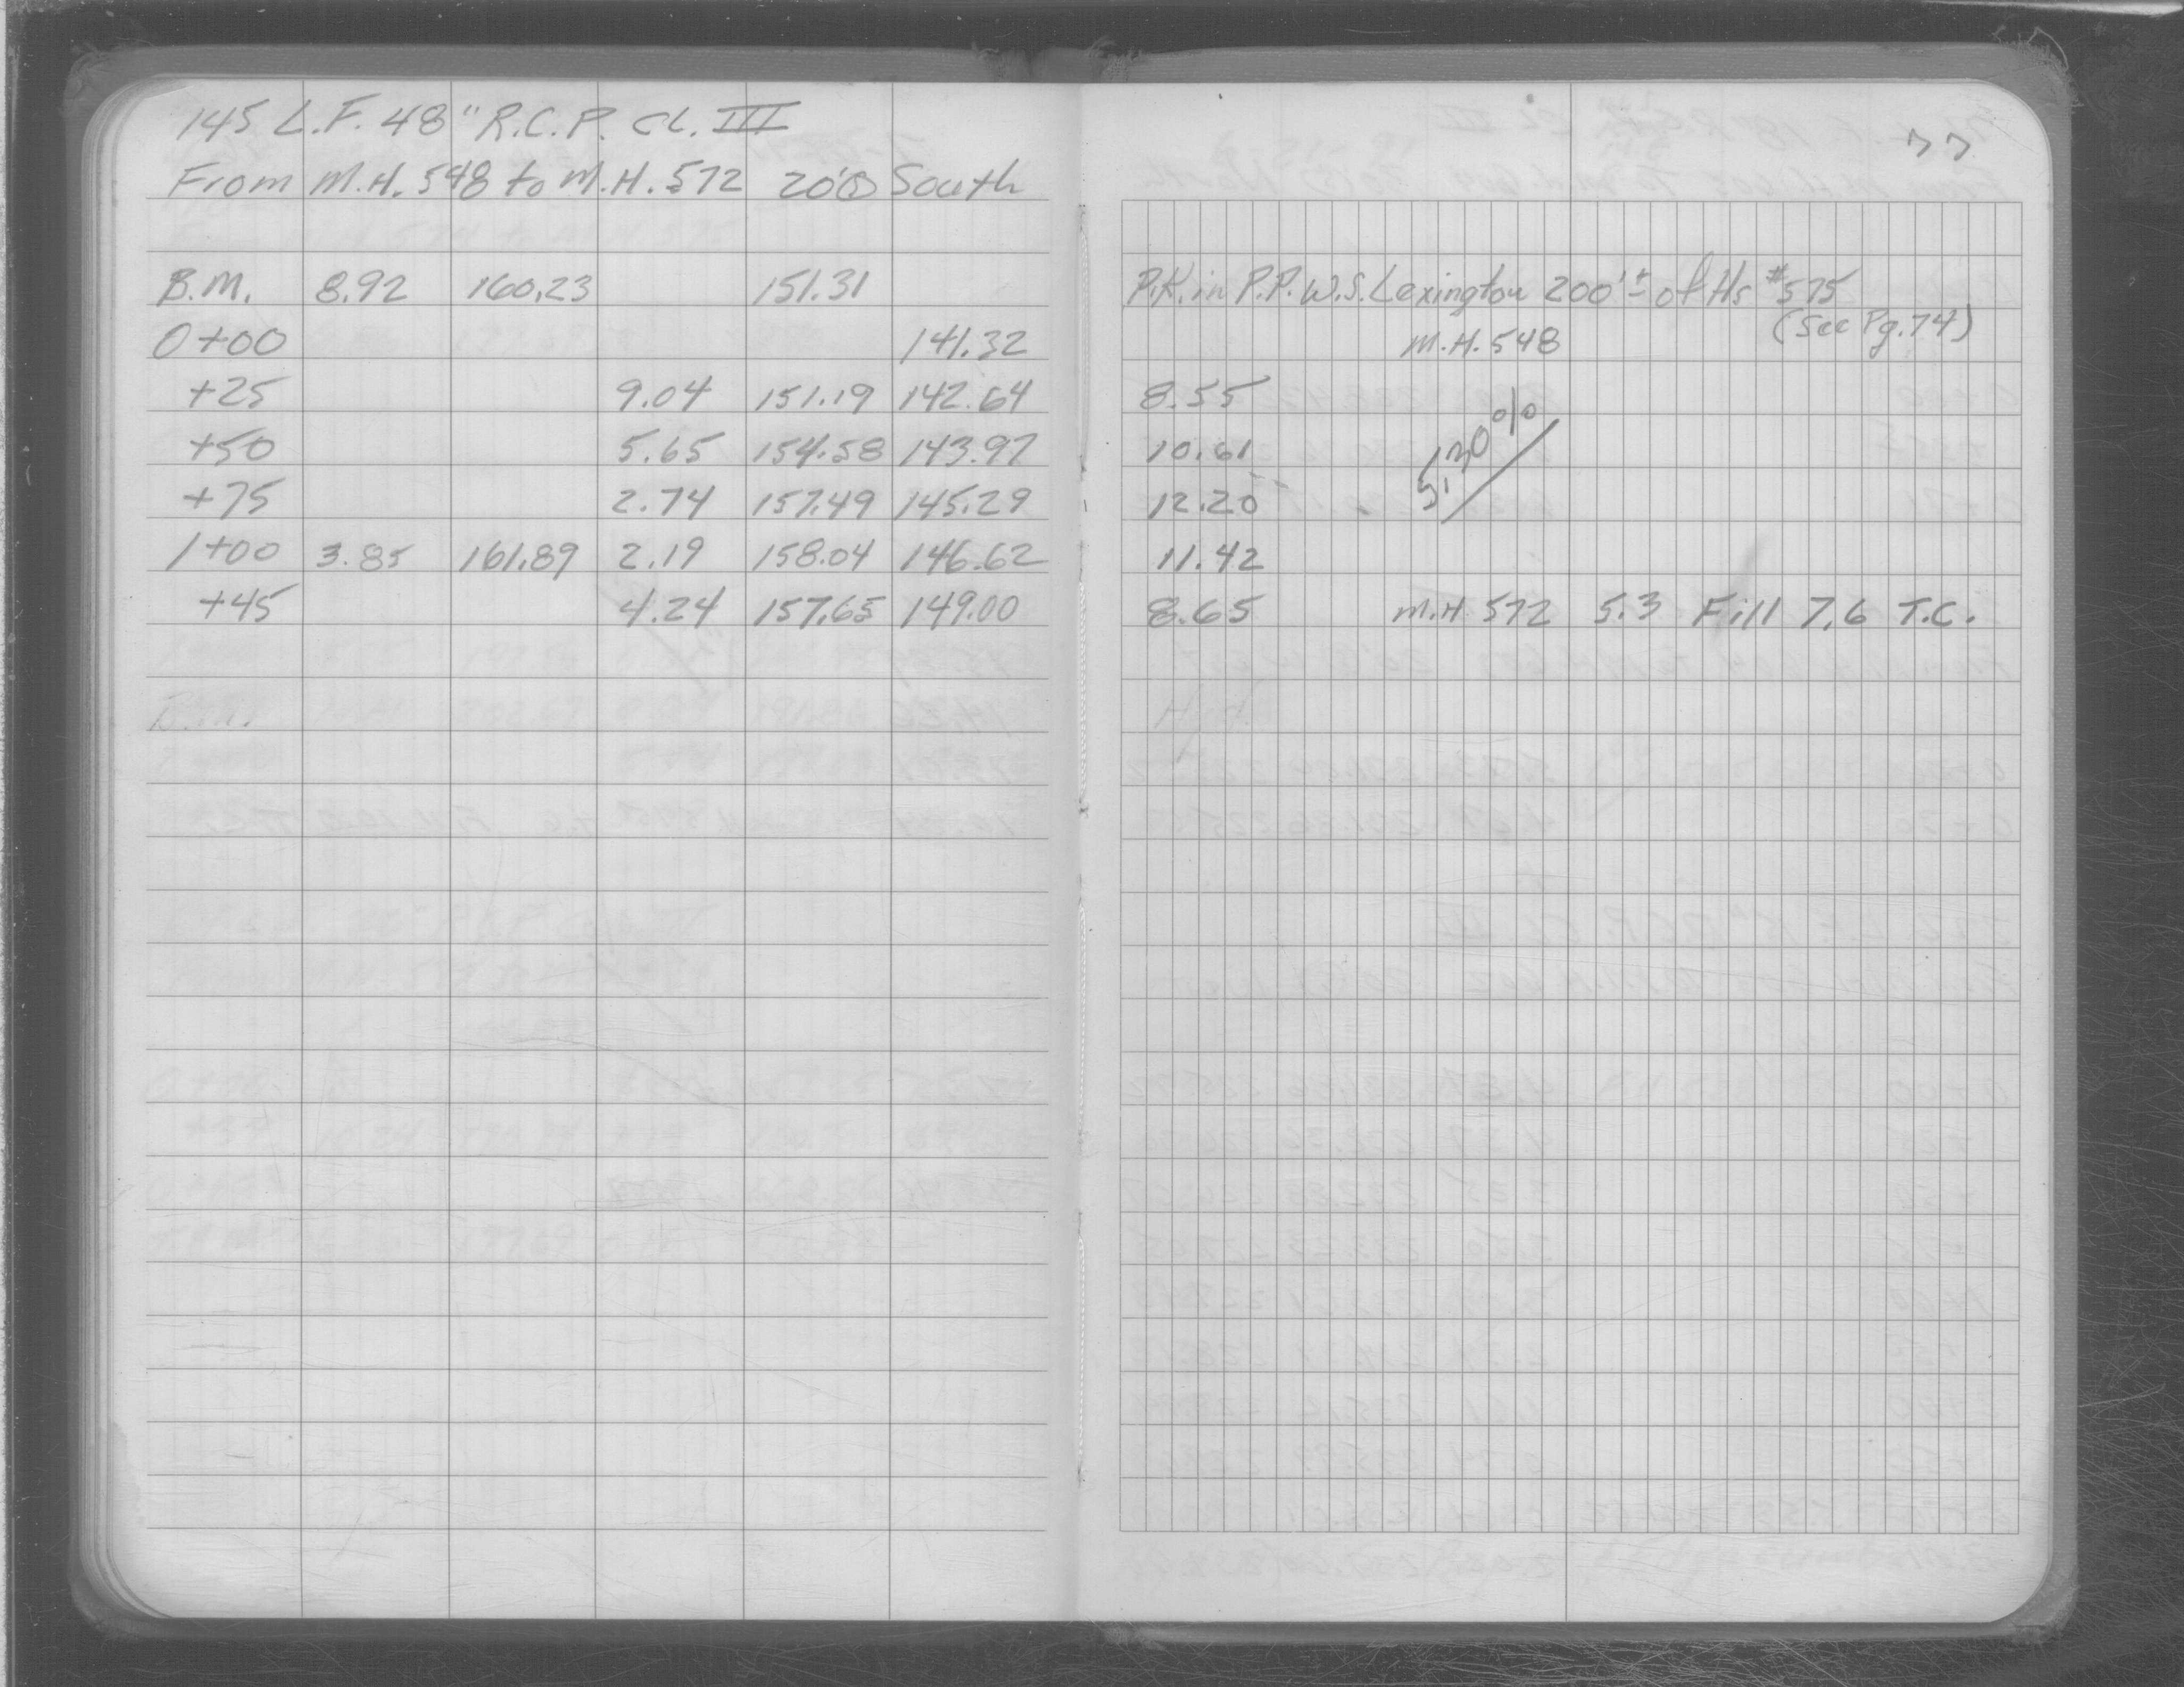 145 L.F. 48" R.C.P. CL. III
From M.H. 548 to M.H. 572 20'⊙ South
B.M. 8.92 160.23 151.31
0+00 141.32
+25 9.04 151.19 142.64
+50 5.65 154.58 143.97
+75 2.74 157.49 145.29
1+00 3.85 161.89 2.19 158.04 146.62
+45 4.24 157.65 149.00
77
P.K. in P.P. W.S. Lexington 200'± of Hs #575
(See Pg. 74)
M.H. 548
8.55
5.30%
10.61
12.20
11.42
8.65 M.H. 572 5.3 Fill 7.6 T.C.